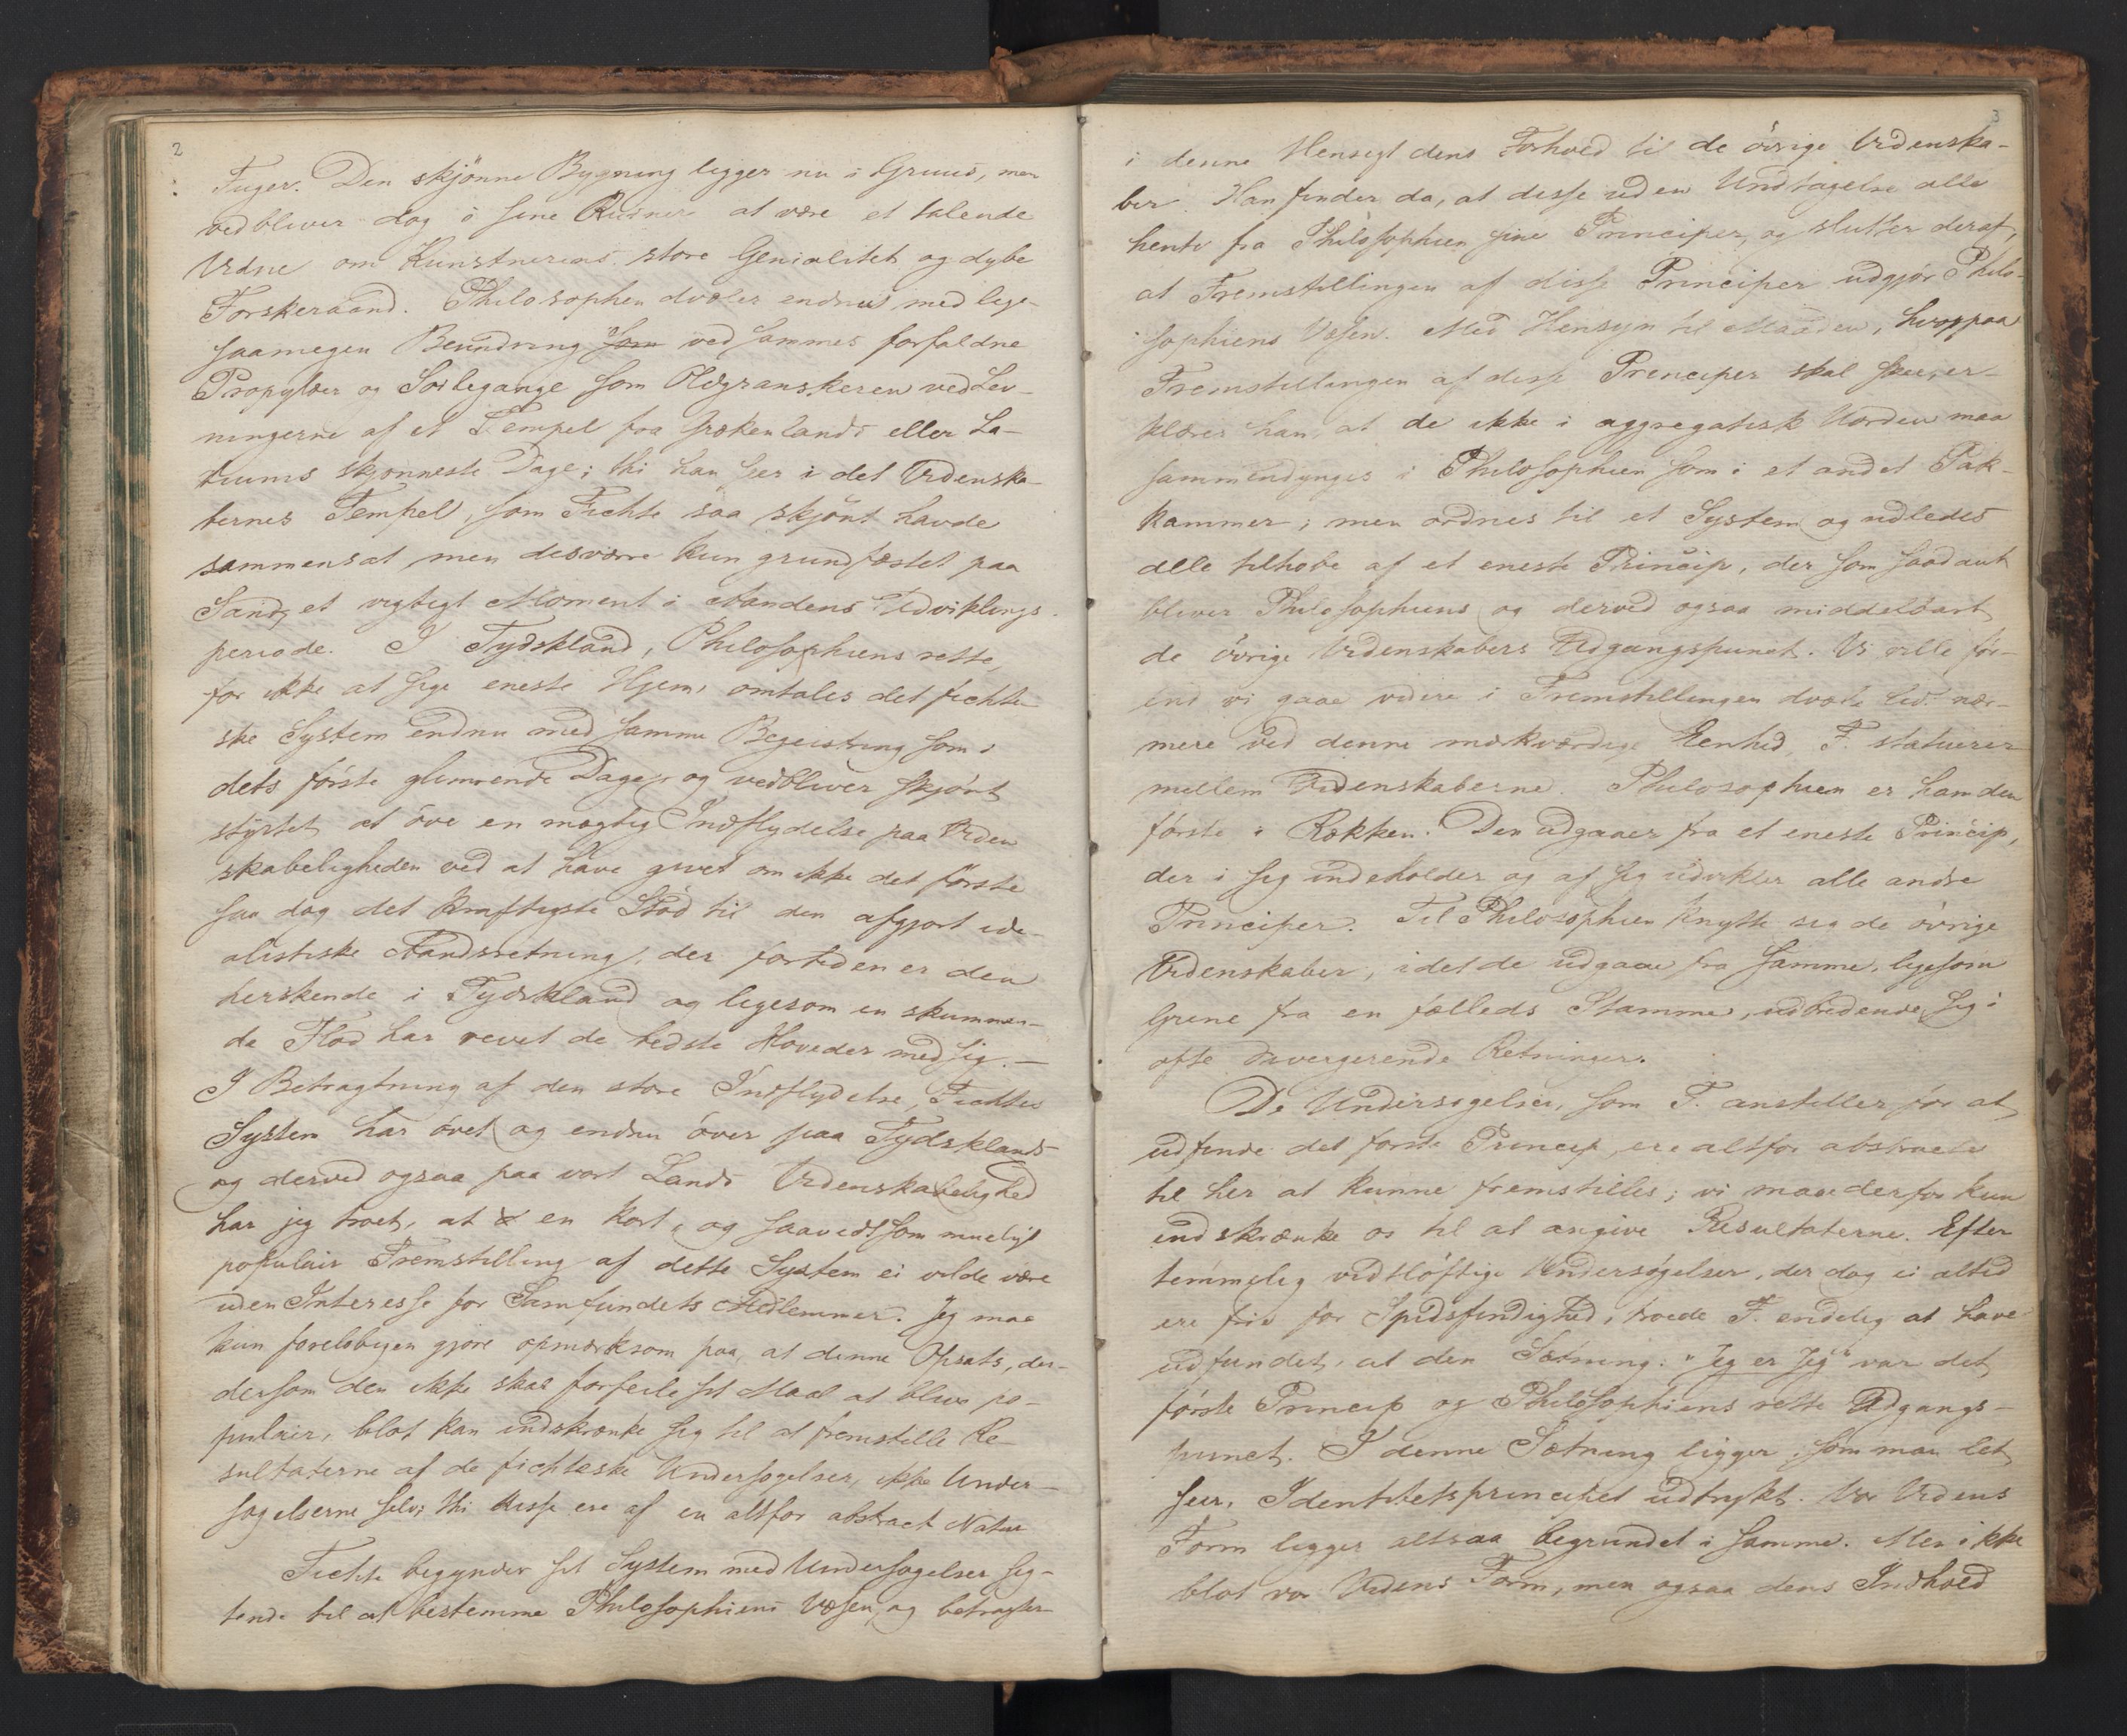 2
Fuger. Den skjönne Bygning ligger nu i Gruus, men
vedbliver dog i sine Ruiner at være et talende
Vidne om Kunstnerens store Genialitet og dybe
Forskeraand. Philosophen dvæler endnu med lige-
saamegen Beundring som ved sammes forfaldne
Propylæer og Söilegange som Oldgranskeren ved Lev-
ningerne af et Tempel fra Grækenlands eller La-
tiums skjönneste Dage; thi han seer i det Videnska-
bernes Tempel, som Fichte saa skjönt havde
sammensat men desværre kun grundfæstet paa
Sand, et vigtigt Moment i Aandens Udviklings-
periode. I Tydskland, Philosophiens rette,
for ikke at sige eneste Hjem, omtales det fichti-
ske System endnu med samme Begeistring som i
dets förste glimrende Dage, og vedbliver skjönt
styrtet at öve en mægtig Indflydelse paa Viden
skabeligheden ved at have givet om ikke det förste
saa dog det kraftigste Stöd til den afgjort ide-
alistiske Aandsretning, der fortiden er den
herskende i Tydskland og ligesom en skummen-
de Flod har revet de bedste Hoveder med sig. —
I Betragtning af den store Indflydelse, Fichtes
System har övet og endnu över paa Tydsklands
og derved ogsaa paa vort Lands Videnskabelighed
har jeg troet, at en kort, og saavidt som mueligt
populair Fremstilling af dette System ei vilde være
uden Interesse for Samfundets Medlemmer. Jeg maa
kun forelöbigen gjöre opmærksom paa, at denne Opsats, der-
dersom den ikke skal forfeile sit Maal at blive po-
pulair, blot kan indskrænke sig til at fremstille Re-
sultaterne af de fichteske Undersögelser, ikke Under-
sögelserne selv; thi disse ere af en altfor abstract Natur
Fichte begynder sit System med Undersögelser sig-
tende til at bestemme Philosophiens Væsen, og betragter
3
i denne Hensigt dens Forhold til de övrige Videnska-
ber. Han finder da, at disse uden Undtagelse alle
hente fra Philosophien sine Principer, og slutter deraf,
at Fremstillingen af disse Principer udgjör Philo-
sophiens Væsen. Med Hensyn til Maaden, hvorpaa
Fremstillingen af disse Principer skal skee, er-
klærer han, at de ikke i aggregatisk Uorden maa
sammendynges i Philosophien som i et andet Pak-
kammer; men ordnes til et System og udledes
alle tilhobe af et eneste Princip, der som saadant
bliver Philosophiens og derved ogsaa middelbart
de övrige Videnskabers Udgangspunct. Vi ville för-
end vi gaae videre i Fremstillingen dvæle lidt nær-
mere ved denne mærkværdige Eenhed, F. statuerer
mellem Videnskaberne. Philosophien er ham den
förste i Rækken. Den udgaaer fra et eneste Princip,
der i sig indeholder og af sig udvikler alle andre
Principer. Til Philosophien knytte sig de övrige
Videnskaber, idet de udgaae fra samme, ligesom
Grene fra en fælleds Stamme, udbredende sig i
ofte divergerende Retninger.
De Undersögelser, som F. anstiller för at
udfinde det förste Princip, ere altfor abstracte
til her at kunne fremstilles; vi maae derfor kun
indskrænke os til at angive Resultaterne. Efter
temmelig vidtlöftige Undersögelser, der dog ei altid
ere frie for Spidsfindighed, troede F. endelig at have
udfundet, at den Sætning: "Jeg er Jeg" var det
förste Princip og Philosophiens rette Udgangs-
punct. I denne Sætning ligger, som man let
seer, Identitetsprincipet udtrykt. Vor Videns
Form ligger altsaa begrundet i samme. Men ikke
blot vor Videns Form, men ogsaa dens Indhold